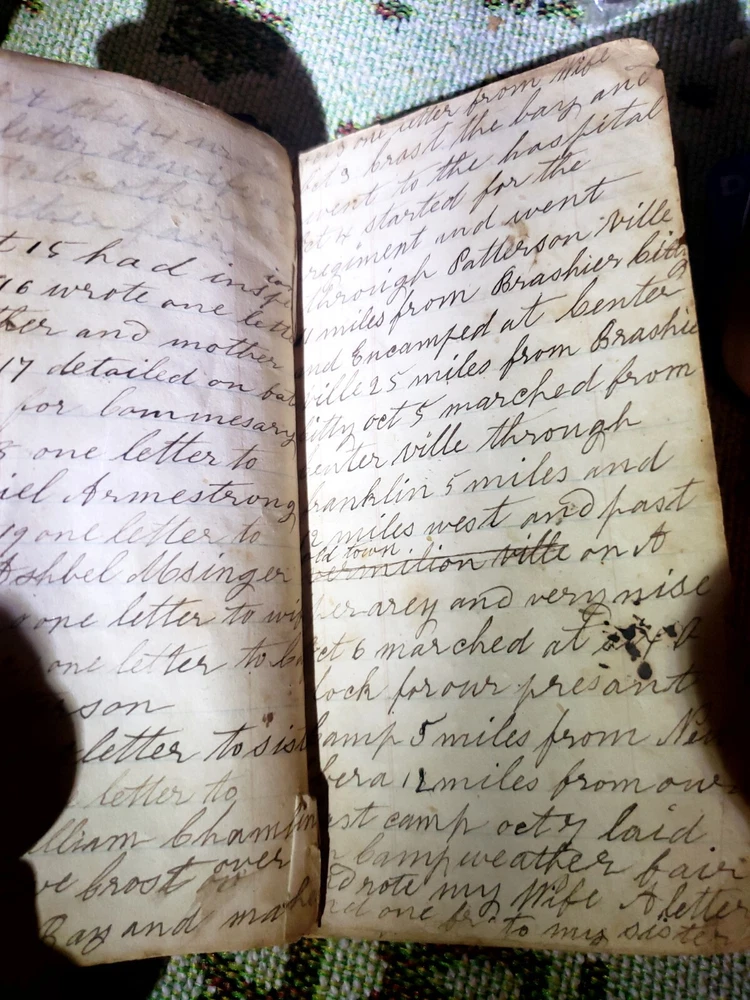 letter to wife
to brother
t 15 had inspe
ion
16 wrote one lette
ther and mother
17 detailed on bat
for Commesary
8 one letter to
iel Armestrong
19 one letter to
Ashbel Msinger
one letter to wi
one letter to b
rson
letter to sist
letter to
illiam Chamlin
ve Crost over
Bay and ma
one letter from Wife
oct 3 Crost the bay and
went to the hospital
oct 4 started for the
regiment and went
through Patterson ville
11 miles from Brashier City
and Encamped at Center
ville 25 miles from Brashie
Citty oct 5 marched from
Center ville through
franklin 5 miles and
12 miles west and past
old town
vermilion ville on A
and very nise
oct 6 marched at
clock for our presant
Camp 5 miles from New
bera 12 miles from our
ast camp oct 7 laid
n Camp weather fair
Wrote my Wife A letter
nd one to my sister